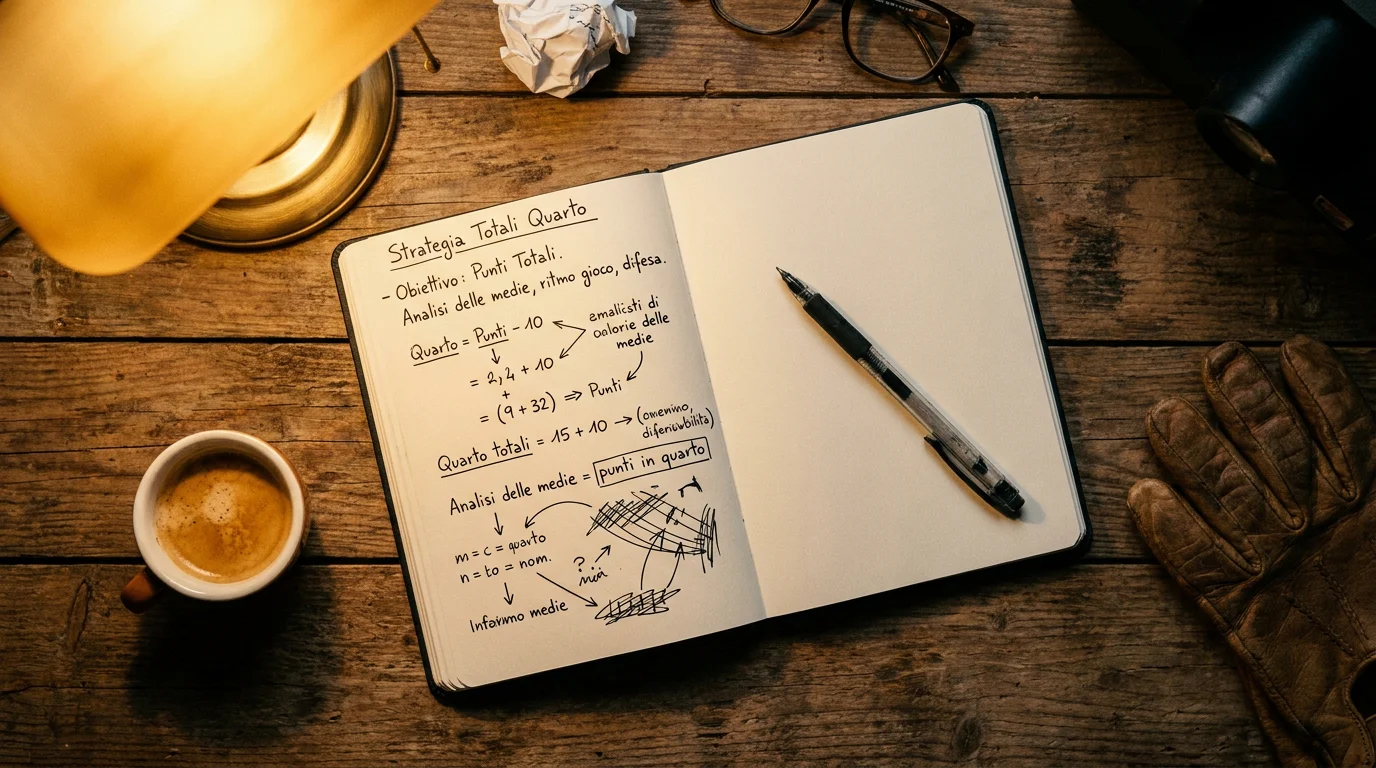 Strategia Totali Quarto
- Obiettivo: Punti Totali.
Analisi delle medie, ritmo gioco, difesa.
Quarto = Punti - 10
= 2,4 + 10
+
= (9 + 32) ⇒ Punti
di
delle
medie
Quarto totali = 15 + 10 →
Analisi delle medie = punti in quarto
m = c = quarto
n = to = nom.
?
medie